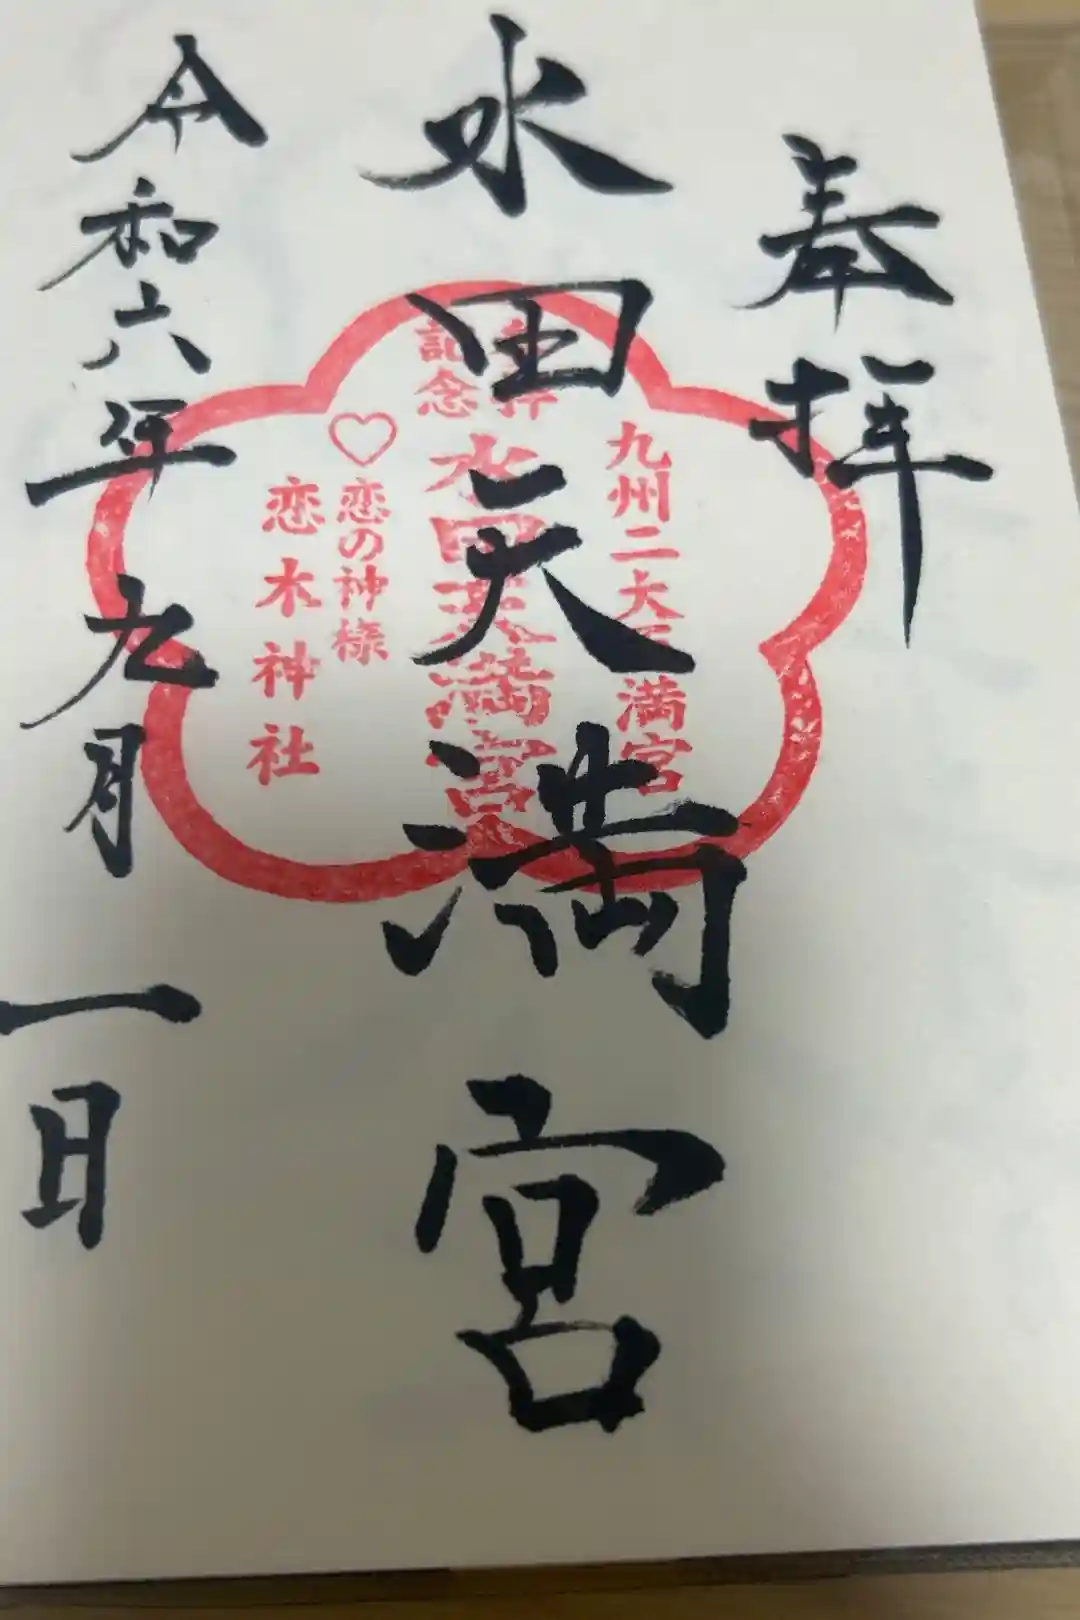 奉拝
水田天満宮
令和六年九月一日
九州二大天満宮
参拝
記念
水田天満宮
♡恋の神様
恋木神社